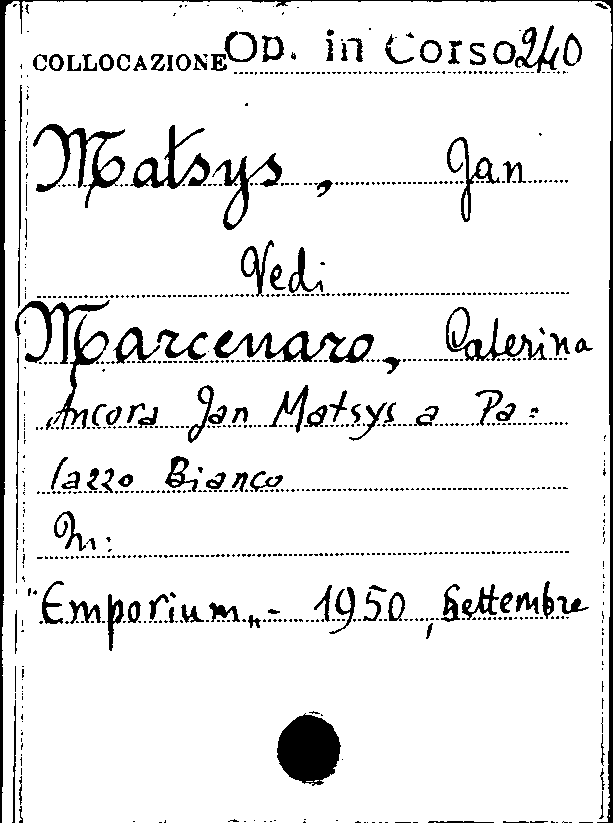 COLLOCAZIONE Op. in Corso 240
Matsys, Jan
Vedi
Marcenaro, Caterina
Ancora Jan Matsys a Pa=
lazzo Bianco
In:
"Emporium„ - 1950, Settembre